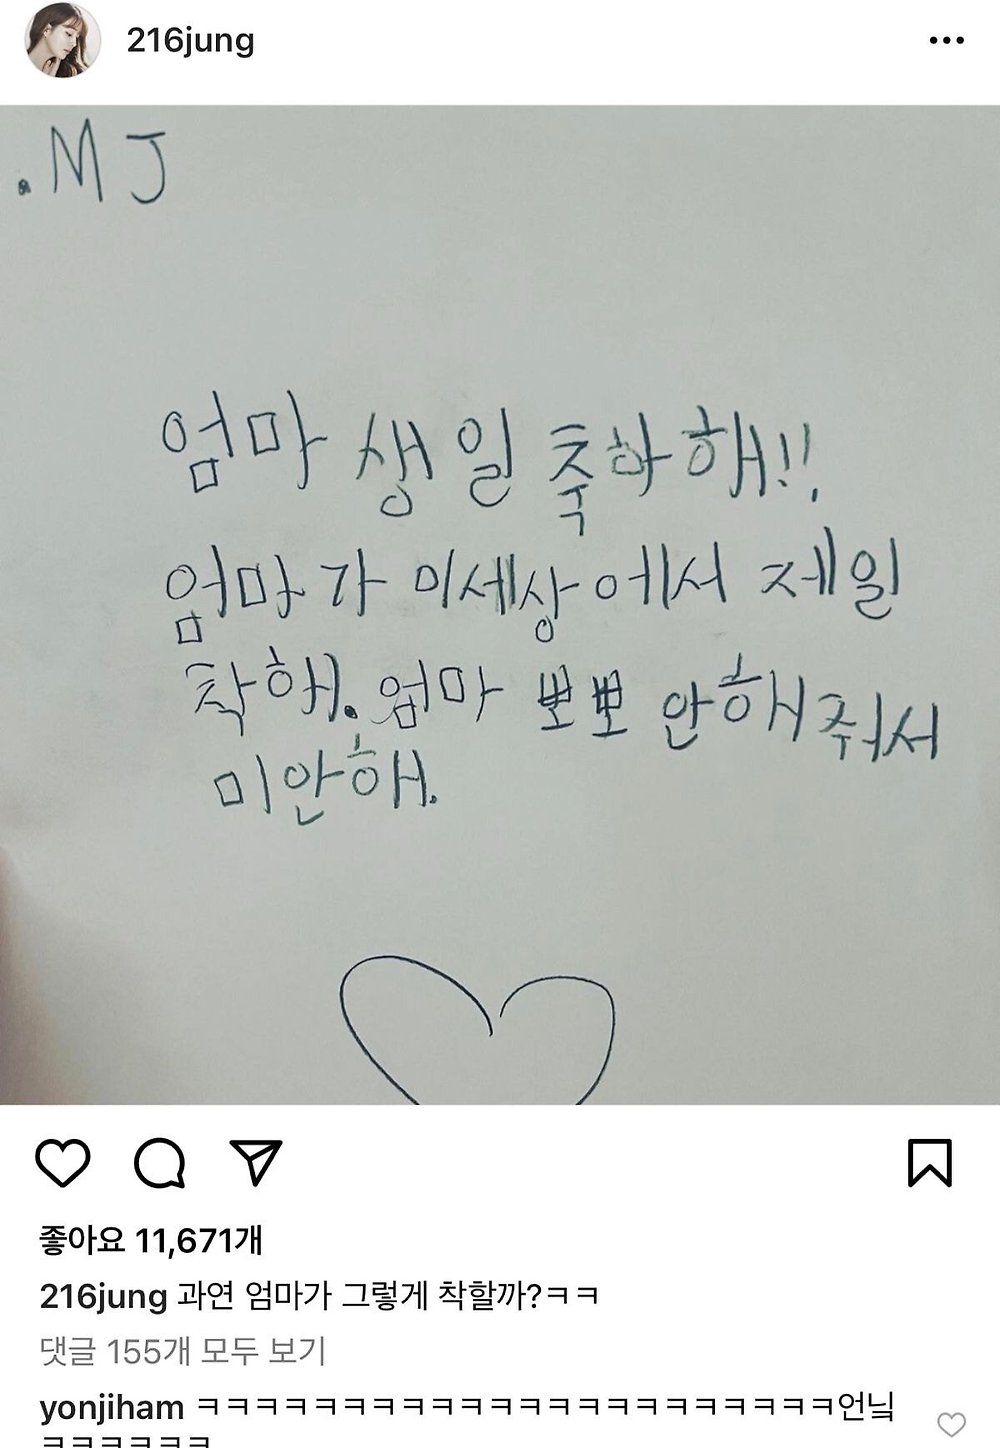 216jung
.MJ
엄마 생일 축하해!!
엄마가 이세상에서 제일
착해. 엄마 뽀뽀 안해줘서
미안해.
좋아요 11,671개
216jung 과연 엄마가 그렇게 착할까?ㅋㅋ
댓글 155개 모두 보기
yonjiham ㅋㅋㅋㅋㅋㅋㅋㅋㅋㅋㅋㅋㅋㅋㅋㅋㅋㅋㅋㅋㅋㅋ언닠
ㅋㅋㅋㅋㅋㅋ